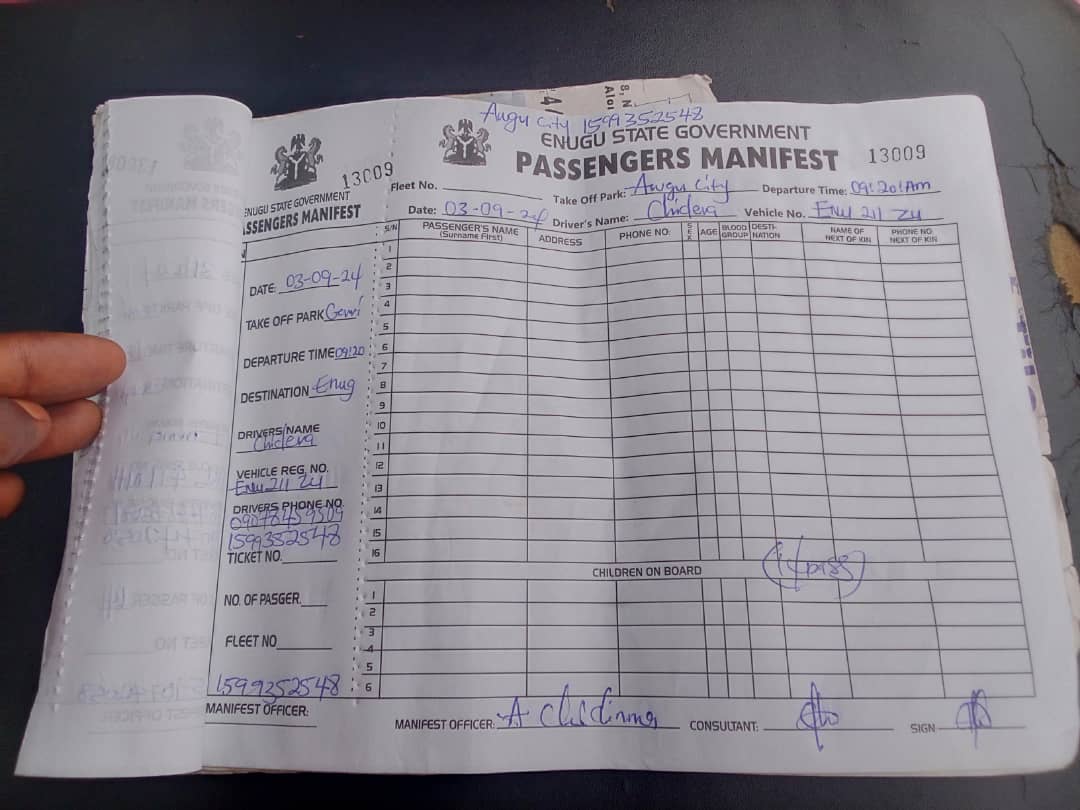 13009
ENUGU STATE GOVERNMENT
PASSENGERS MANIFEST
DATE: 03-09-24
TAKE OFF PARK
DEPARTURE TIME 09:20
DESTINATION Enug
DRIVERS NAME
Chidera
VEHICLE REG. NO.
ENU 211 ZU
DRIVERS PHONE NO.
1599352548
TICKET NO.
NO. OF PASGER.
FLEET NO
1599352548
MANIFEST OFFICER:
Awgu City 1599352548
ENUGU STATE GOVERNMENT
PASSENGERS MANIFEST 13009
Fleet No. Take Off Park: Awgu City Departure Time: 09:20:Am
Date: 03-09-24 Driver's Name: Chidera Vehicle No. ENU 211 ZU
S/N PASSENGER'S NAME (Surname First) ADDRESS PHONE NO: SEX AGE BLOOD GROUP DESTI-NATION NAME OF NEXT OF KIN PHONE NO. NEXT OF KIN
1
2
3
4
5
6
7
8
9
10
11
12
13
14
15
16
CHILDREN ON BOARD (14 pass)
1
2
3
4
5
6
MANIFEST OFFICER: A Chidinma CONSULTANT: SIGN